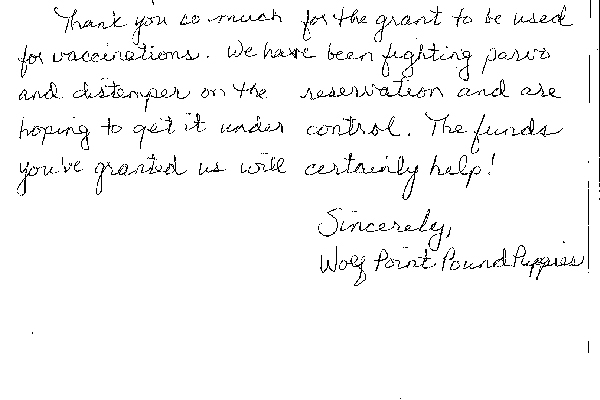 Thank you so much for the grant to be used
for vaccinations. We have been fighting parvo
and distemper on the reservation and are
hoping to get it under control. The funds
you've granted us will certainly help!
Sincerely,
Wolf Point Pound Puppies